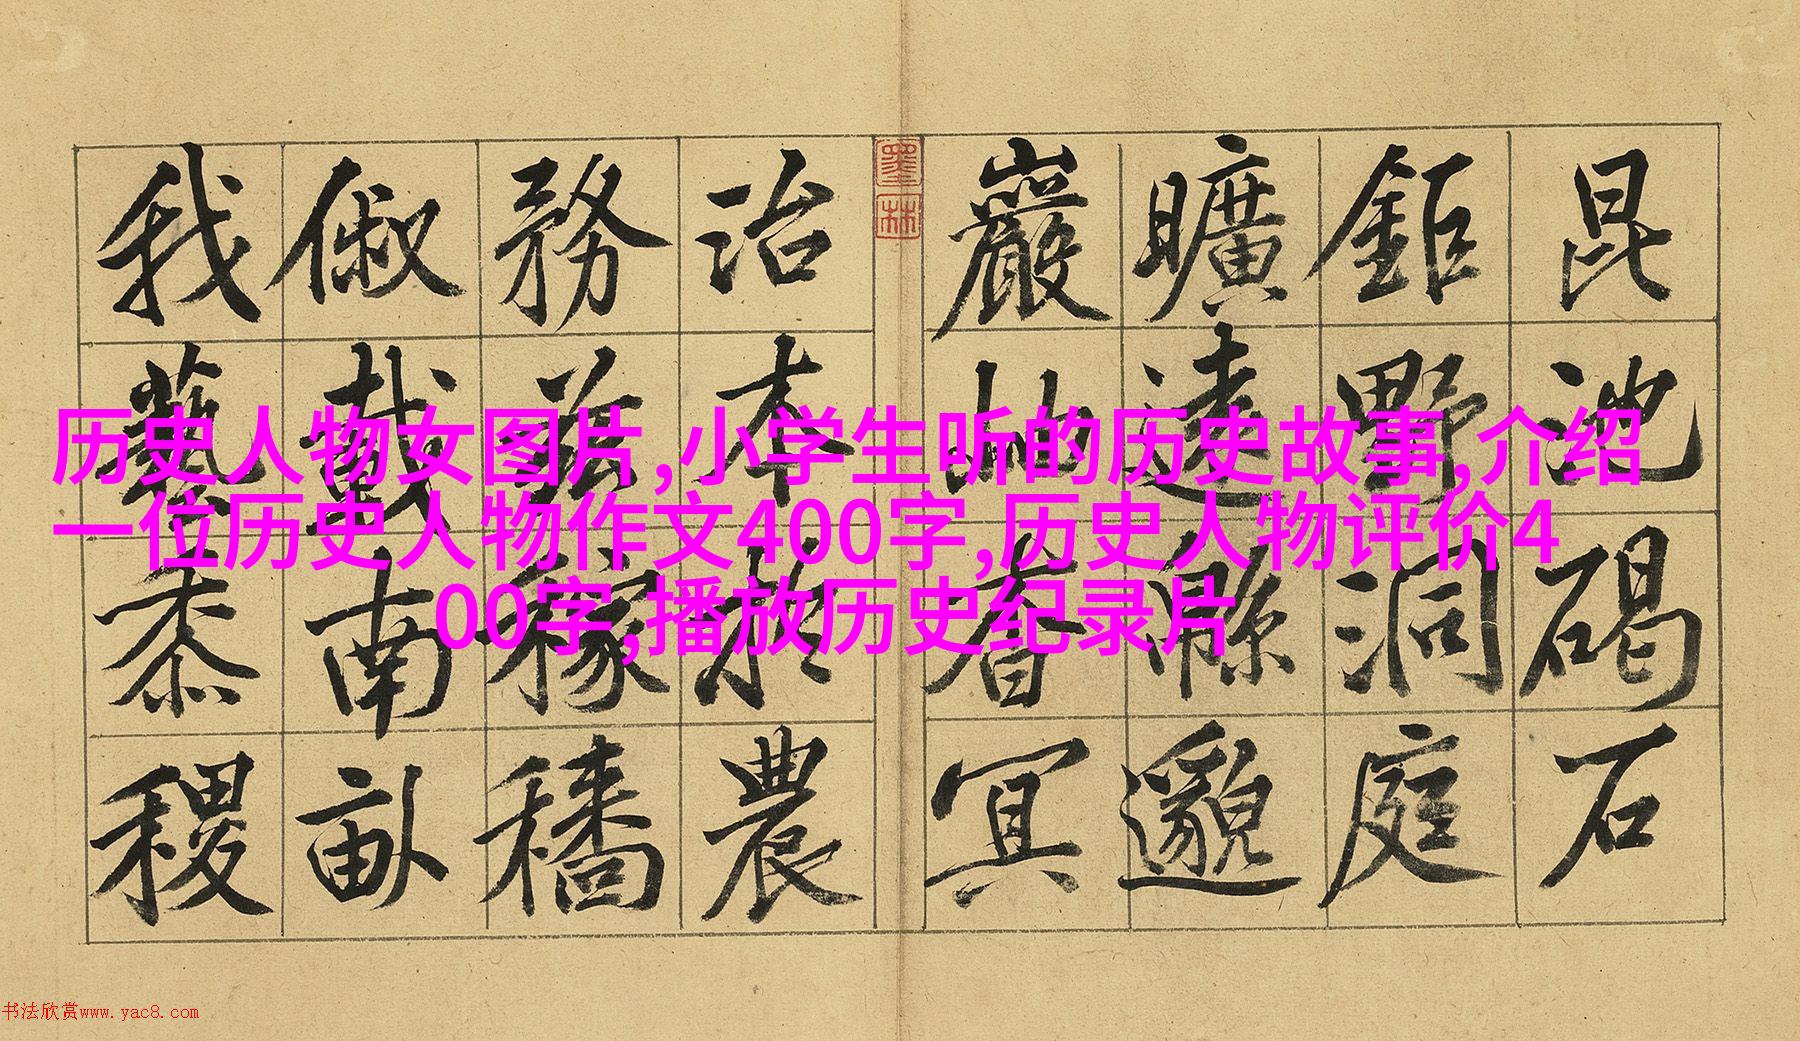 昆池碣石
鉅野洞庭
曠遠緜邈
巖岫杳冥
治本於農
務茲稼穡
俶載南畝
我藝黍稷
墨林
历史人物女图片,小学生听的历史故事,介绍
一位历史人物作文400字,历史人物评价4
00字,播放历史纪录片
书法欣赏www.yac8.com